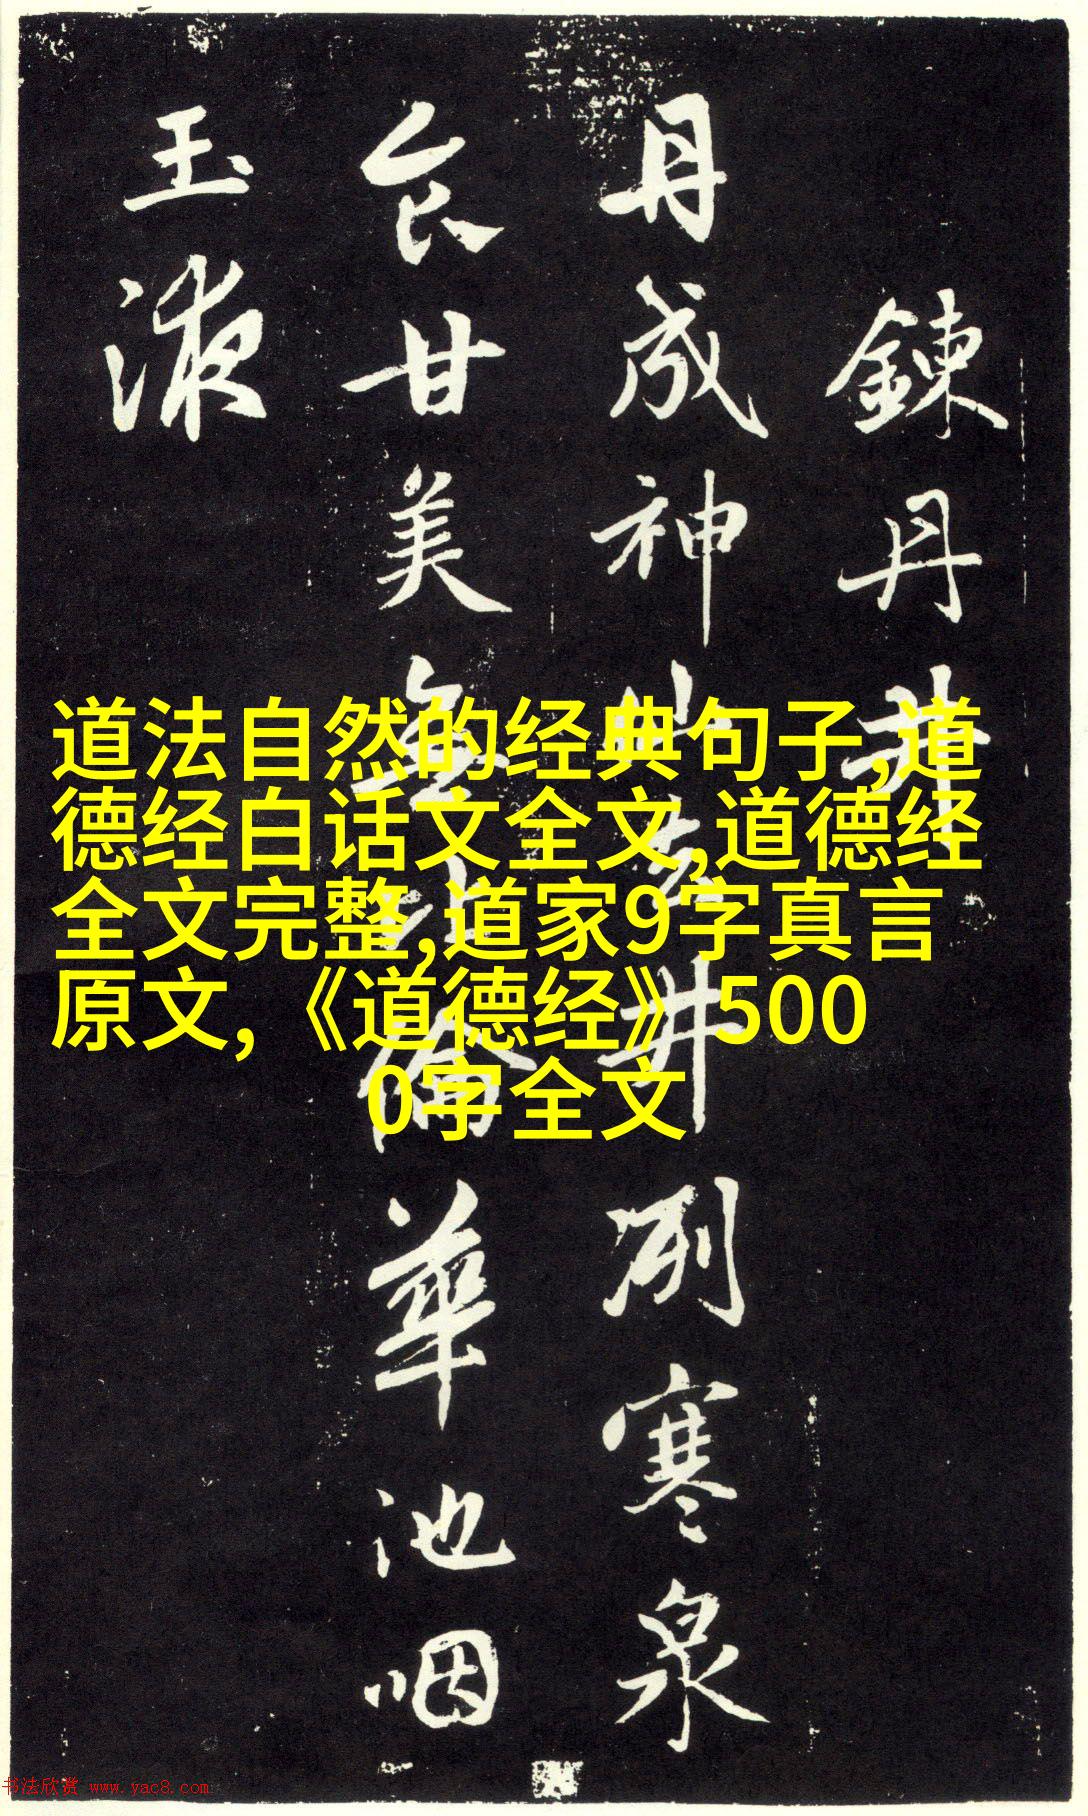 鍊丹井
丹成神仙去井冽寒泉
食甘美無比倫華池咽
玉液
道法自然的经典句子,道
德经白话文全文,道德经
全文完整,道家9字真言
原文,《道德经》500
0字全文
书法欣赏 www.yac8.com